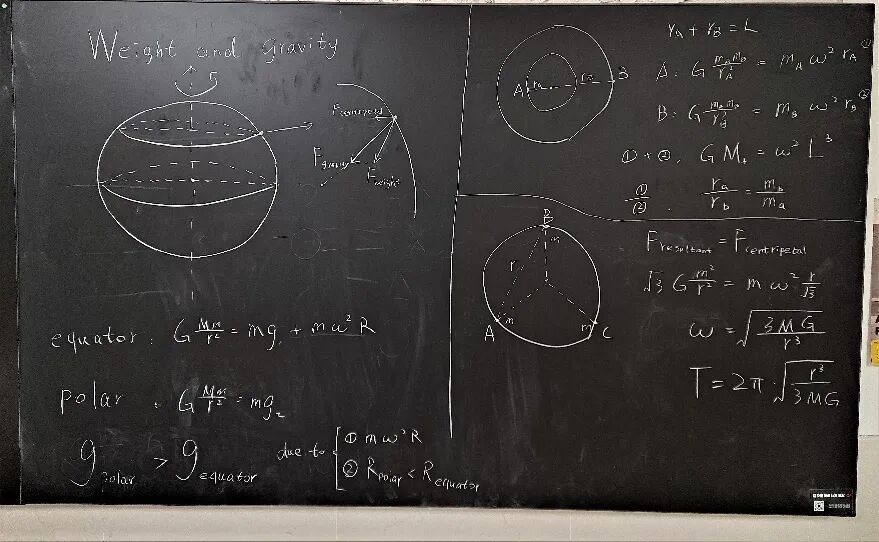 Weight and gravity
5
Fcentripetal
Fgravity
Fweight
equator: G Mm/r² = mg₁ + mω²R
polar : G Mm/r² = mg₂
g polar > g equator due to ① mω²R
② R polar < R equator
A ra rb B
rA + rB = L
A: G mA mB/rA² = mA ω² rA ①
B: G mA mB/rB² = mB ω² rB ②
① + ②, G M₊ = ω² L³
①/② , ra/rb = mb/ma
B
m
r
A m m C
F resultant = F centripetal
√3 G m²/r² = m ω² r/√3
ω = √(3MG/r³)
T = 2π · √(r³/3MG)